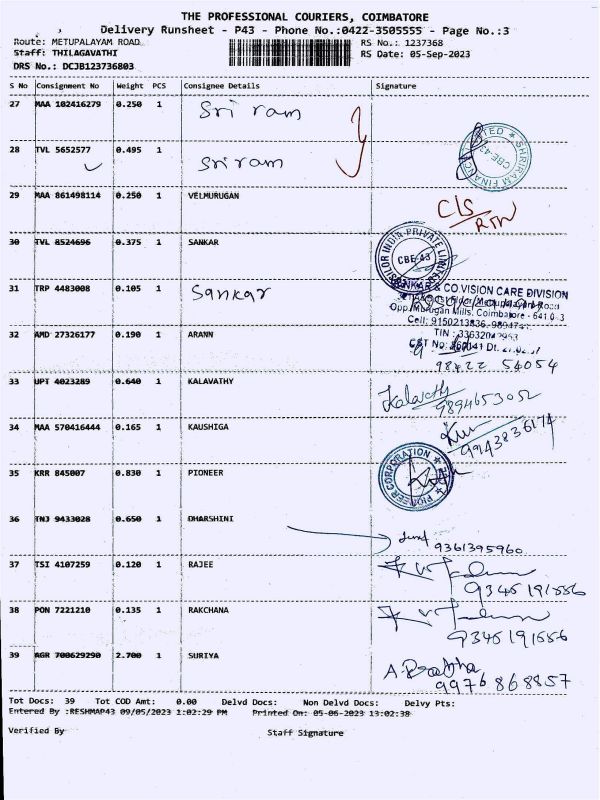 THE PROFESSIONAL COURIERS, COIMBATORE
Delivery Runsheet - P43 - Phone No.:0422-3505555 - Page No.:3
Route: METUPALAYAM ROAD
RS No.: 1237368
Staff: THILAGAVATHI
RS Date: 05-Sep-2023
DRS No.: DCJB123736803
S No Consignment No Weight PCS Consignee Details Signature
27 MAA 102416279 0.250 1 Sri ram
28 TVL 5652577 0.495 1 Sri ram
SHRIRAM FINANCE LIMITED CBE-43
29 MAA 861498114 0.250 1 VELMURUGAN C/S
30 TVL 8524696 0.375 1 SANKAR
INDIA PRIVATE LIMITED CBE-43
31 TRP 4483008 0.105 1 Sankar
& CO.VISION CARE DIVISION
Opp. Murugan Mills, Coimbatore
TIN : 33632042953
32 AMD 27326177 0.190 1 ARANN
98422 54054
33 UPT 4023289 0.640 1 KALAVATHY Kalavathy
9894653052
34 MAA 570416444 0.165 1 KAUSHIGA
9943836174
35 KRR 845007 0.830 1 PIONEER
PIONEER CORPORATION
36 TNJ 9433028 0.650 1 DHARSHINI
9361395960
37 TSI 4107259 0.120 1 RAJEE
9345191556
38 PON 7221210 0.135 1 RAKCHANA
9345191556
39 AGR 700629290 2.700 1 SURIYA A. Prabha
9976868857
Tot Docs: 39 Tot COD Amt: 0.00 Delvd Docs: Non Delvd Docs: Delvy Pts:
Entered By :RESHMAP43 09/05/2023 1:02:29 PM Printed On: 05-06-2023 13:02:38
Verified By Staff Signature